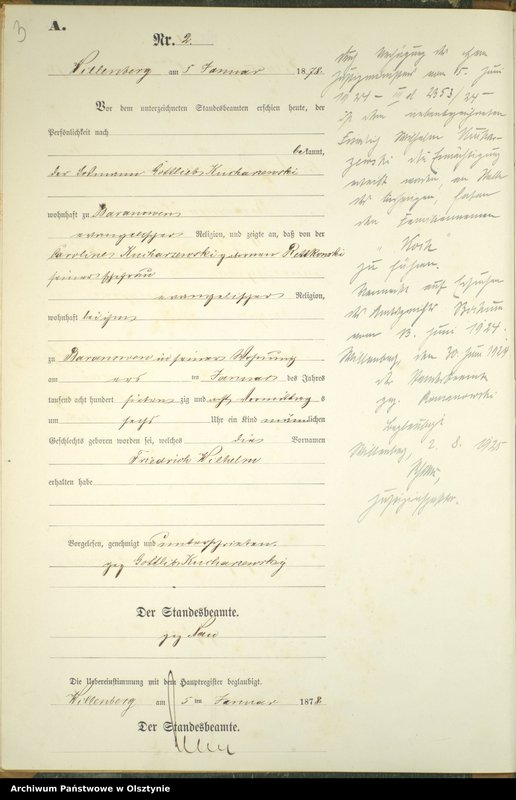 3
A.
Nr. 2.
Willenberg am 5 Januar 1878.
Vor dem unterzeichneten Standesbeamten erschien heute, der
Persönlichkeit nach
bekannt,
der Losmann Gottlieb Kucharzewski
wohnhaft zu Baranowen
evangelischer Religion, und zeigte an, daß von der
Karoline Kucharzewski gebornen Rettkowski
seiner Ehefrau
evangelischer Religion,
wohnhaft bei ihm
zu Baranowen in seiner Wohnung
am ten Januar des Jahres
tausend acht hundert siebenzig und acht Vormittags
um sechs Uhr ein Kind männlichen
Geschlechts geboren worden sei, welches die Vornamen
Friedrich Wilhelm
erhalten habe
Vorgelesen, genehmigt und unterschrieben
gez Gottlieb Kucharzewski
Der Standesbeamte.
gez
Die Uebereinstimmung mit dem Hauptregister beglaubigt.
Willenberg am 5 ten Januar 1878.
Der Standesbeamte.
Auf Verfügung des Herrn
Justizministers vom 15. Juni
1924 – III d 2353/24 –
ist dem nebenbezeichneten
Friedrich Wilhelm Kuchar-
zewski die Ermächtigung
erteilt worden, an Stelle
des bisherigen, fortan
den Familiennamen
"
zu führen.
auf Ersuchen
des Amtsgerichts Bochum
vom 13. Juni 1924.
Willenberg, den 30. Juni 1924
der Standesbeamte
gez. Romanowski
Beglaubigt
Willenberg, 2. 8. 1925
Justizinspektor.
Archiwum Państwowe w Olsztynie